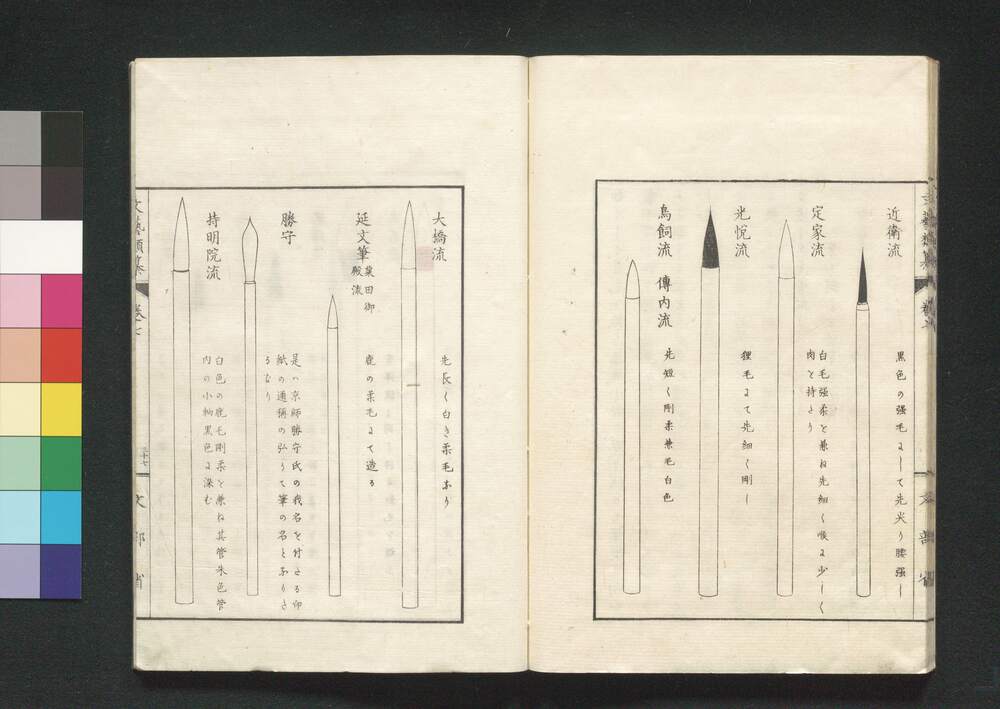 近衛流
黒色の强毛ʌして先尖り腰强し
定家流
白毛强柔と兼ね先細く喉ʌ少しく
肉と持さり
光悦流
狸毛ʌて先細く剛し
鳥飼流 傳内流
先短く剛柔兼毛白色
大橋流
先長く白き柔毛あり
延文筆
粟田御
殿流
鹿の柔毛ʌて造る
勝守
是ハ京師勝守氏の我名を付さる印
紙の通稱の弘りて筆の名とありさ
るなり
持明院流
白色の鹿毛剛柔と兼ね其管朱色管
内の小軸黒色ʌ深む
文藝類纂 卷七
三十七
文部省